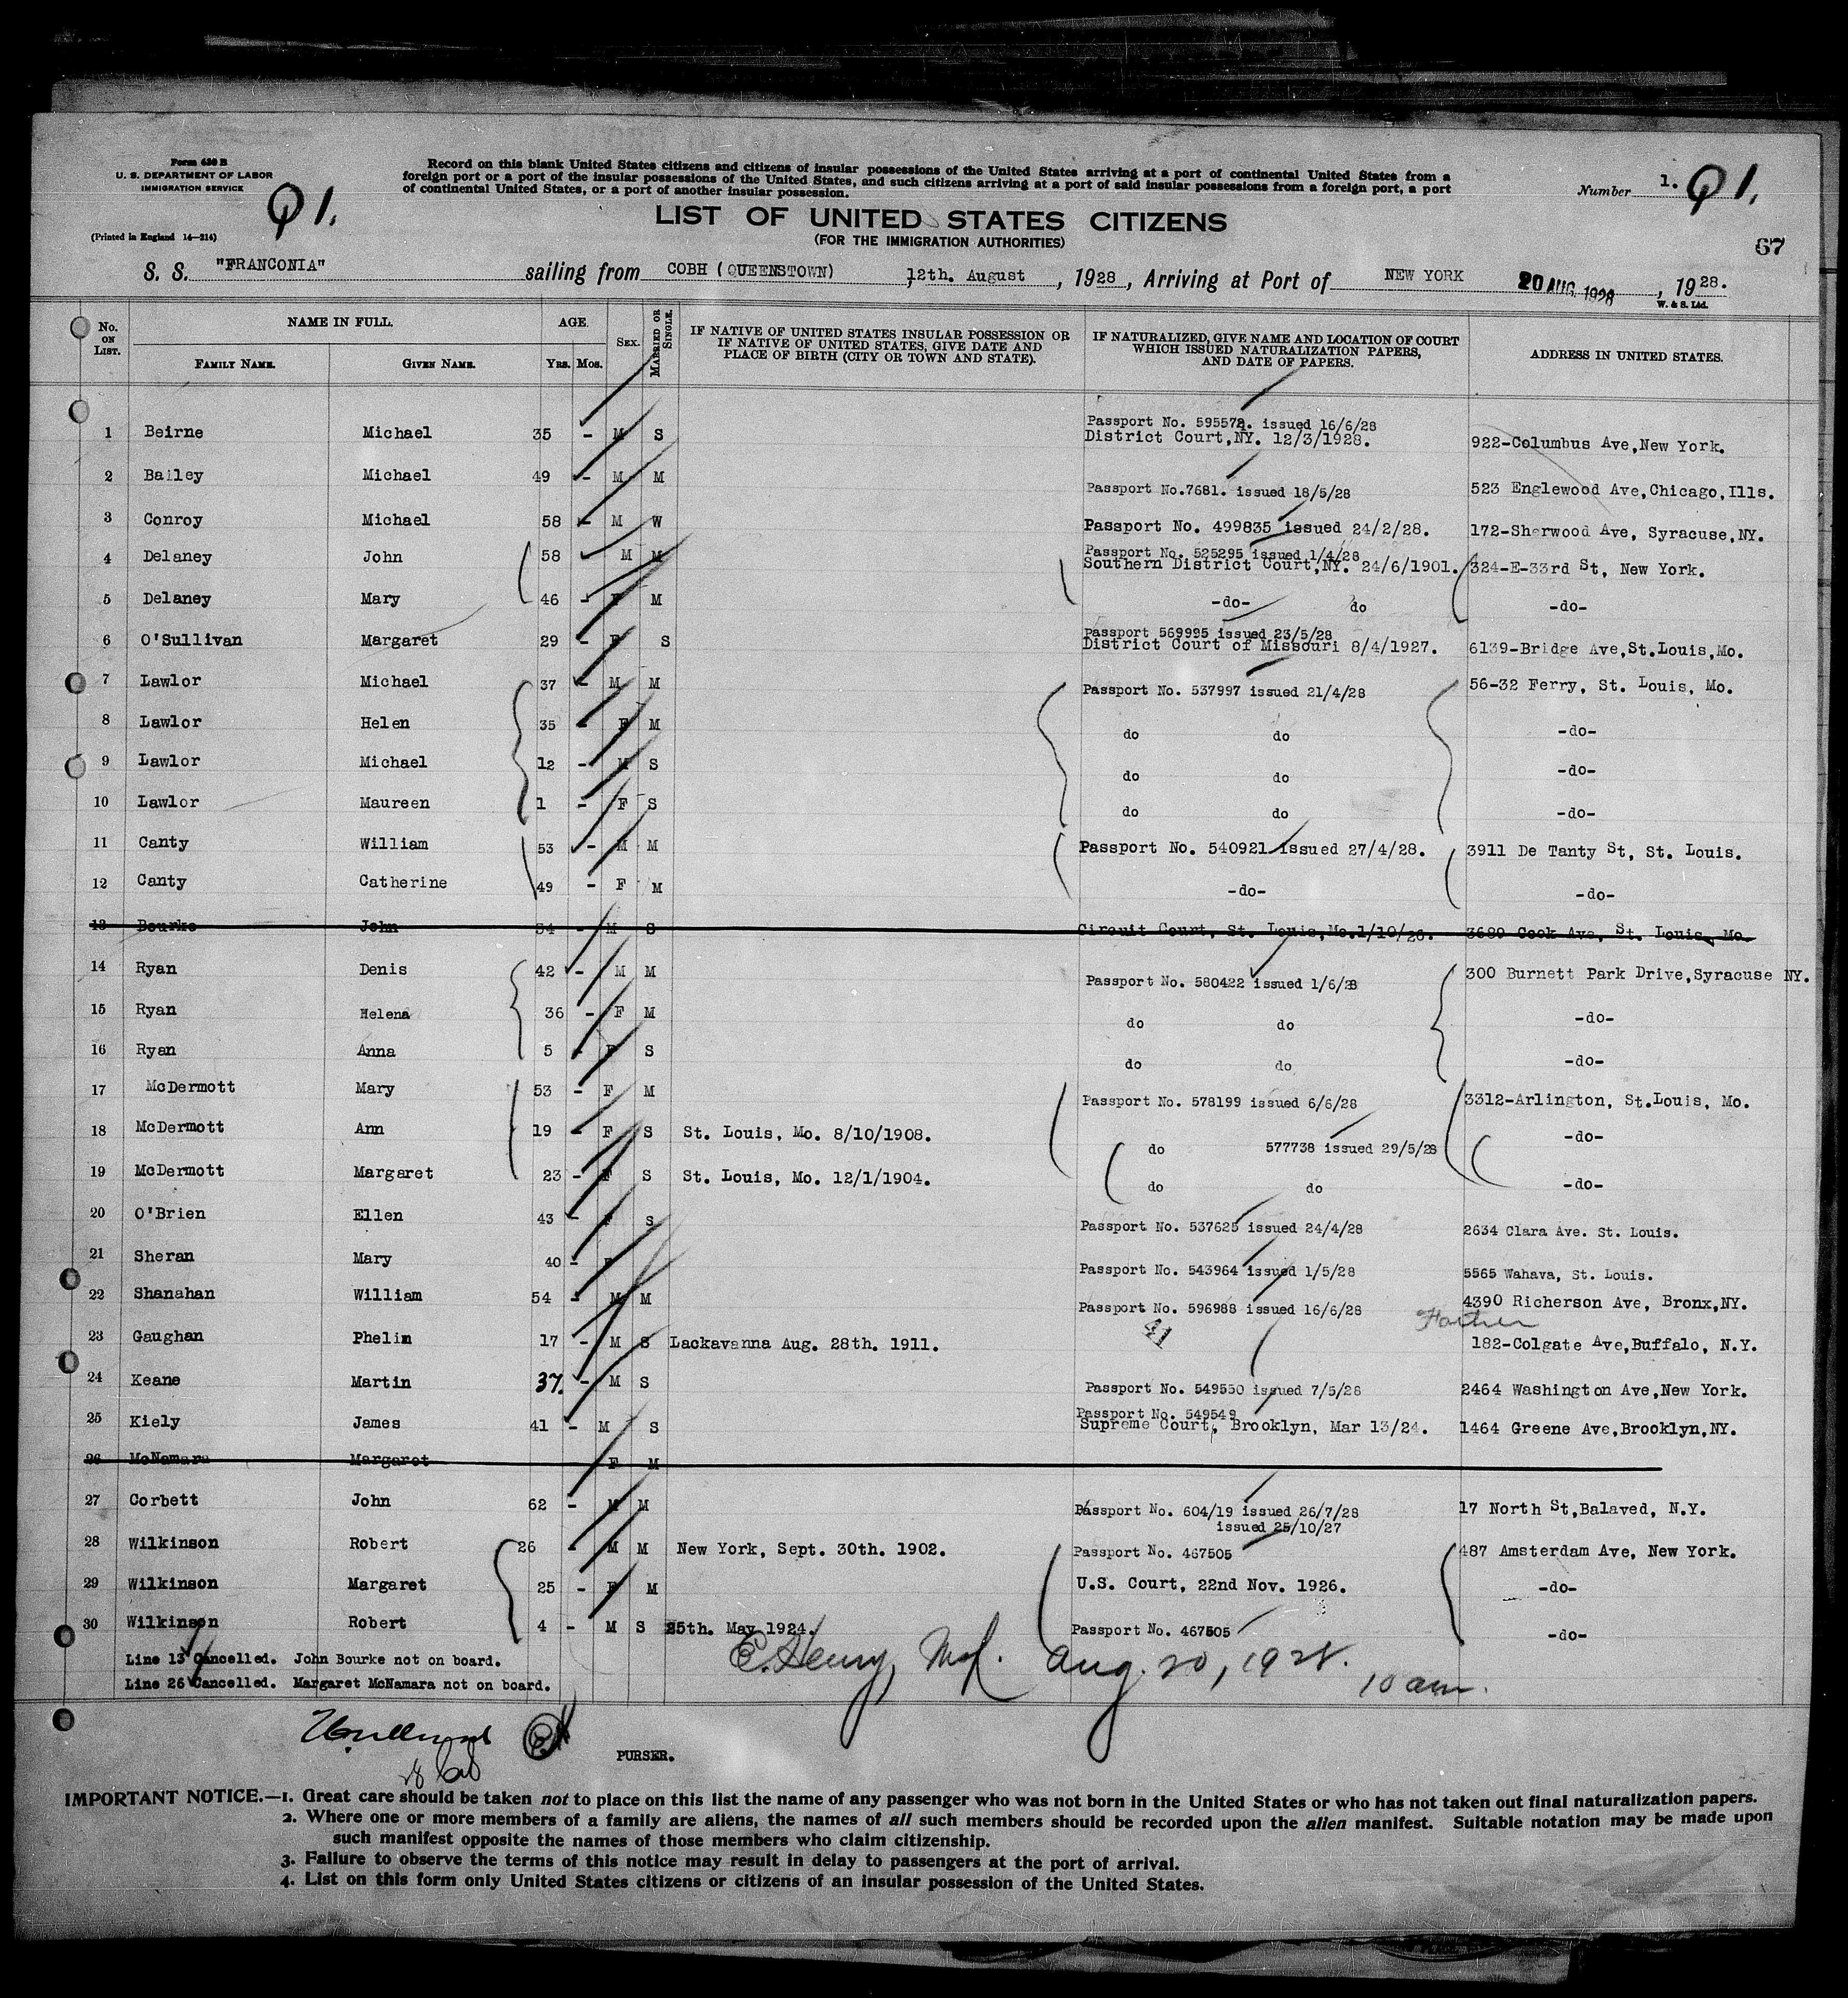 Form 630 B
U. S. DEPARTMENT OF LABOR
IMMIGRATION SERVICE
Q1.
(Printed in England 14—214)
Record on this blank United States citizens and citizens of insular possessions of the United States arriving at a port of continental United States from a
foreign port or a port of the insular possessions of the United States, and such citizens arriving at a port of said insular possessions from a foreign port, a port
of continental United States, or a port of another insular possession.
Number 1. Q1.
LIST OF UNITED STATES CITIZENS
(FOR THE IMMIGRATION AUTHORITIES)
67
S. S. "FRANCONIA" sailing from COBH (QUEENSTOWN) 12th. August, 1928, Arriving at Port of NEW YORK 20 AUG 1928, 1928.
W. & S. Ltd.
No. ON LIST. NAME IN FULL. FAMILY NAME. GIVEN NAME. AGE. YRS. MOS. SEX. MARRIED OR SINGLE. IF NATIVE OF UNITED STATES INSULAR POSSESSION OR IF NATIVE OF UNITED STATES, GIVE DATE AND PLACE OF BIRTH (CITY OR TOWN AND STATE). IF NATURALIZED, GIVE NAME AND LOCATION OF COURT WHICH ISSUED NATURALIZATION PAPERS, AND DATE OF PAPERS. ADDRESS IN UNITED STATES.
Passport No. 595572. issued 16/6/28
1 Beirne Michael 35 - M S District Court,NY. 12/3/1928. 922-Columbus Ave,New York.
2 Bailey Michael 49 - M M Passport No.7681. issued 18/5/28 523 Englewood Ave,Chicago,Ills.
3 Conroy Michael 58 - M W Passport No. 499835 issued 24/2/28. 172-Sherwood Ave, Syracuse,NY.
Passport No. 525295 issued 1/4/28
4 Delaney John 58 M M Southern District Court,NY. 24/6/1901. 324-E-33rd St, New York.
5 Delaney Mary 46 - F M -do- do -do-
Passport 569995 issued 23/5/28
6 O'Sullivan Margaret 29 - F S District Court of Missouri 8/4/1927. 6139-Bridge Ave,St.Louis,Mo.
7 Lawlor Michael 37 - M M Passport No. 537997 issued 21/4/28 56-32 Ferry, St. Louis, Mo.
8 Lawlor Helen 35 - F M do do -do-
9 Lawlor Michael 12 - M S do do -do-
10 Lawlor Maureen 1 - F S do do -do-
11 Canty William 53 - M M Passport No. 540921 issued 27/4/28. 3911 De Tanty St, St. Louis.
12 Canty Catherine 49 - F M -do- -do-
13 Bourke John 54 - M S Circuit Court, St. Louis,Mo.1/10/26. 3680 Cook Ave, St. Louis, Mo.
14 Ryan Denis 42 - M M Passport No. 580422 issued 1/6/28 300 Burnett Park Drive,Syracuse NY.
15 Ryan Helena 36 - F M do do -do-
16 Ryan Anna 5 - F S do do -do-
17 McDermott Mary 53 - F M Passport No. 578199 issued 6/6/28 3312-Arlington, St.Louis, Mo.
18 McDermott Ann 19 - F S St. Louis, Mo. 8/10/1908. do 577738 issued 29/5/28 -do-
19 McDermott Margaret 23 - F S St. Louis, Mo. 12/1/1904. do do -do-
20 O'Brien Ellen 43 - F S Passport No. 537625 issued 24/4/28 2634 Clara Ave. St. Louis.
21 Sheran Mary 40 - F Passport No. 543964 issued 1/5/28 5565 Wahava, St. Louis.
22 Shanahan William 54 - M M Passport No. 596988 issued 16/6/28 4390 Richerson Ave, Bronx,NY.
41 Father
23 Gaughan Phelim 17 - M S Lackavanna Aug. 28th. 1911. 182-Colgate Ave,Buffalo, N.Y.
24 Keane Martin 37. - M S Passport No. 549550 issued 7/5/28 2464 Washington Ave,New York.
Passport No. 549549
25 Kiely James 41 - M S Supreme Court, Brooklyn, Mar 13/24. 1464 Greene Ave,Brooklyn,NY.
26 McNamara Margaret F M
27 Corbett John 62 - M M Passport No. 604/19 issued 26/7/28 17 North St,Balaved, N.Y.
issued 25/10/27
28 Wilkinson Robert 26 - M M New York, Sept. 30th. 1902. Passport No. 467505 487 Amsterdam Ave, New York.
29 Wilkinson Margaret 25 - F M U.S. Court, 22nd Nov. 1926. -do-
30 Wilkinson Robert 4 - M S 25th. May 1924. Passport No. 467505 -do-
Line 13 Cancelled. John Bourke not on board.
Line 26 Cancelled. Margaret McNamara not on board.
E. Henry, Aug. 20, 1928. 10 am.
PURSER.
IMPORTANT NOTICE.—1. Great care should be taken not to place on this list the name of any passenger who was not born in the United States or who has not taken out final naturalization papers.
2. Where one or more members of a family are aliens, the names of all such members should be recorded upon the alien manifest. Suitable notation may be made upon
such manifest opposite the names of those members who claim citizenship.
3. Failure to observe the terms of this notice may result in delay to passengers at the port of arrival.
4. List on this form only United States citizens or citizens of an insular possession of the United States.